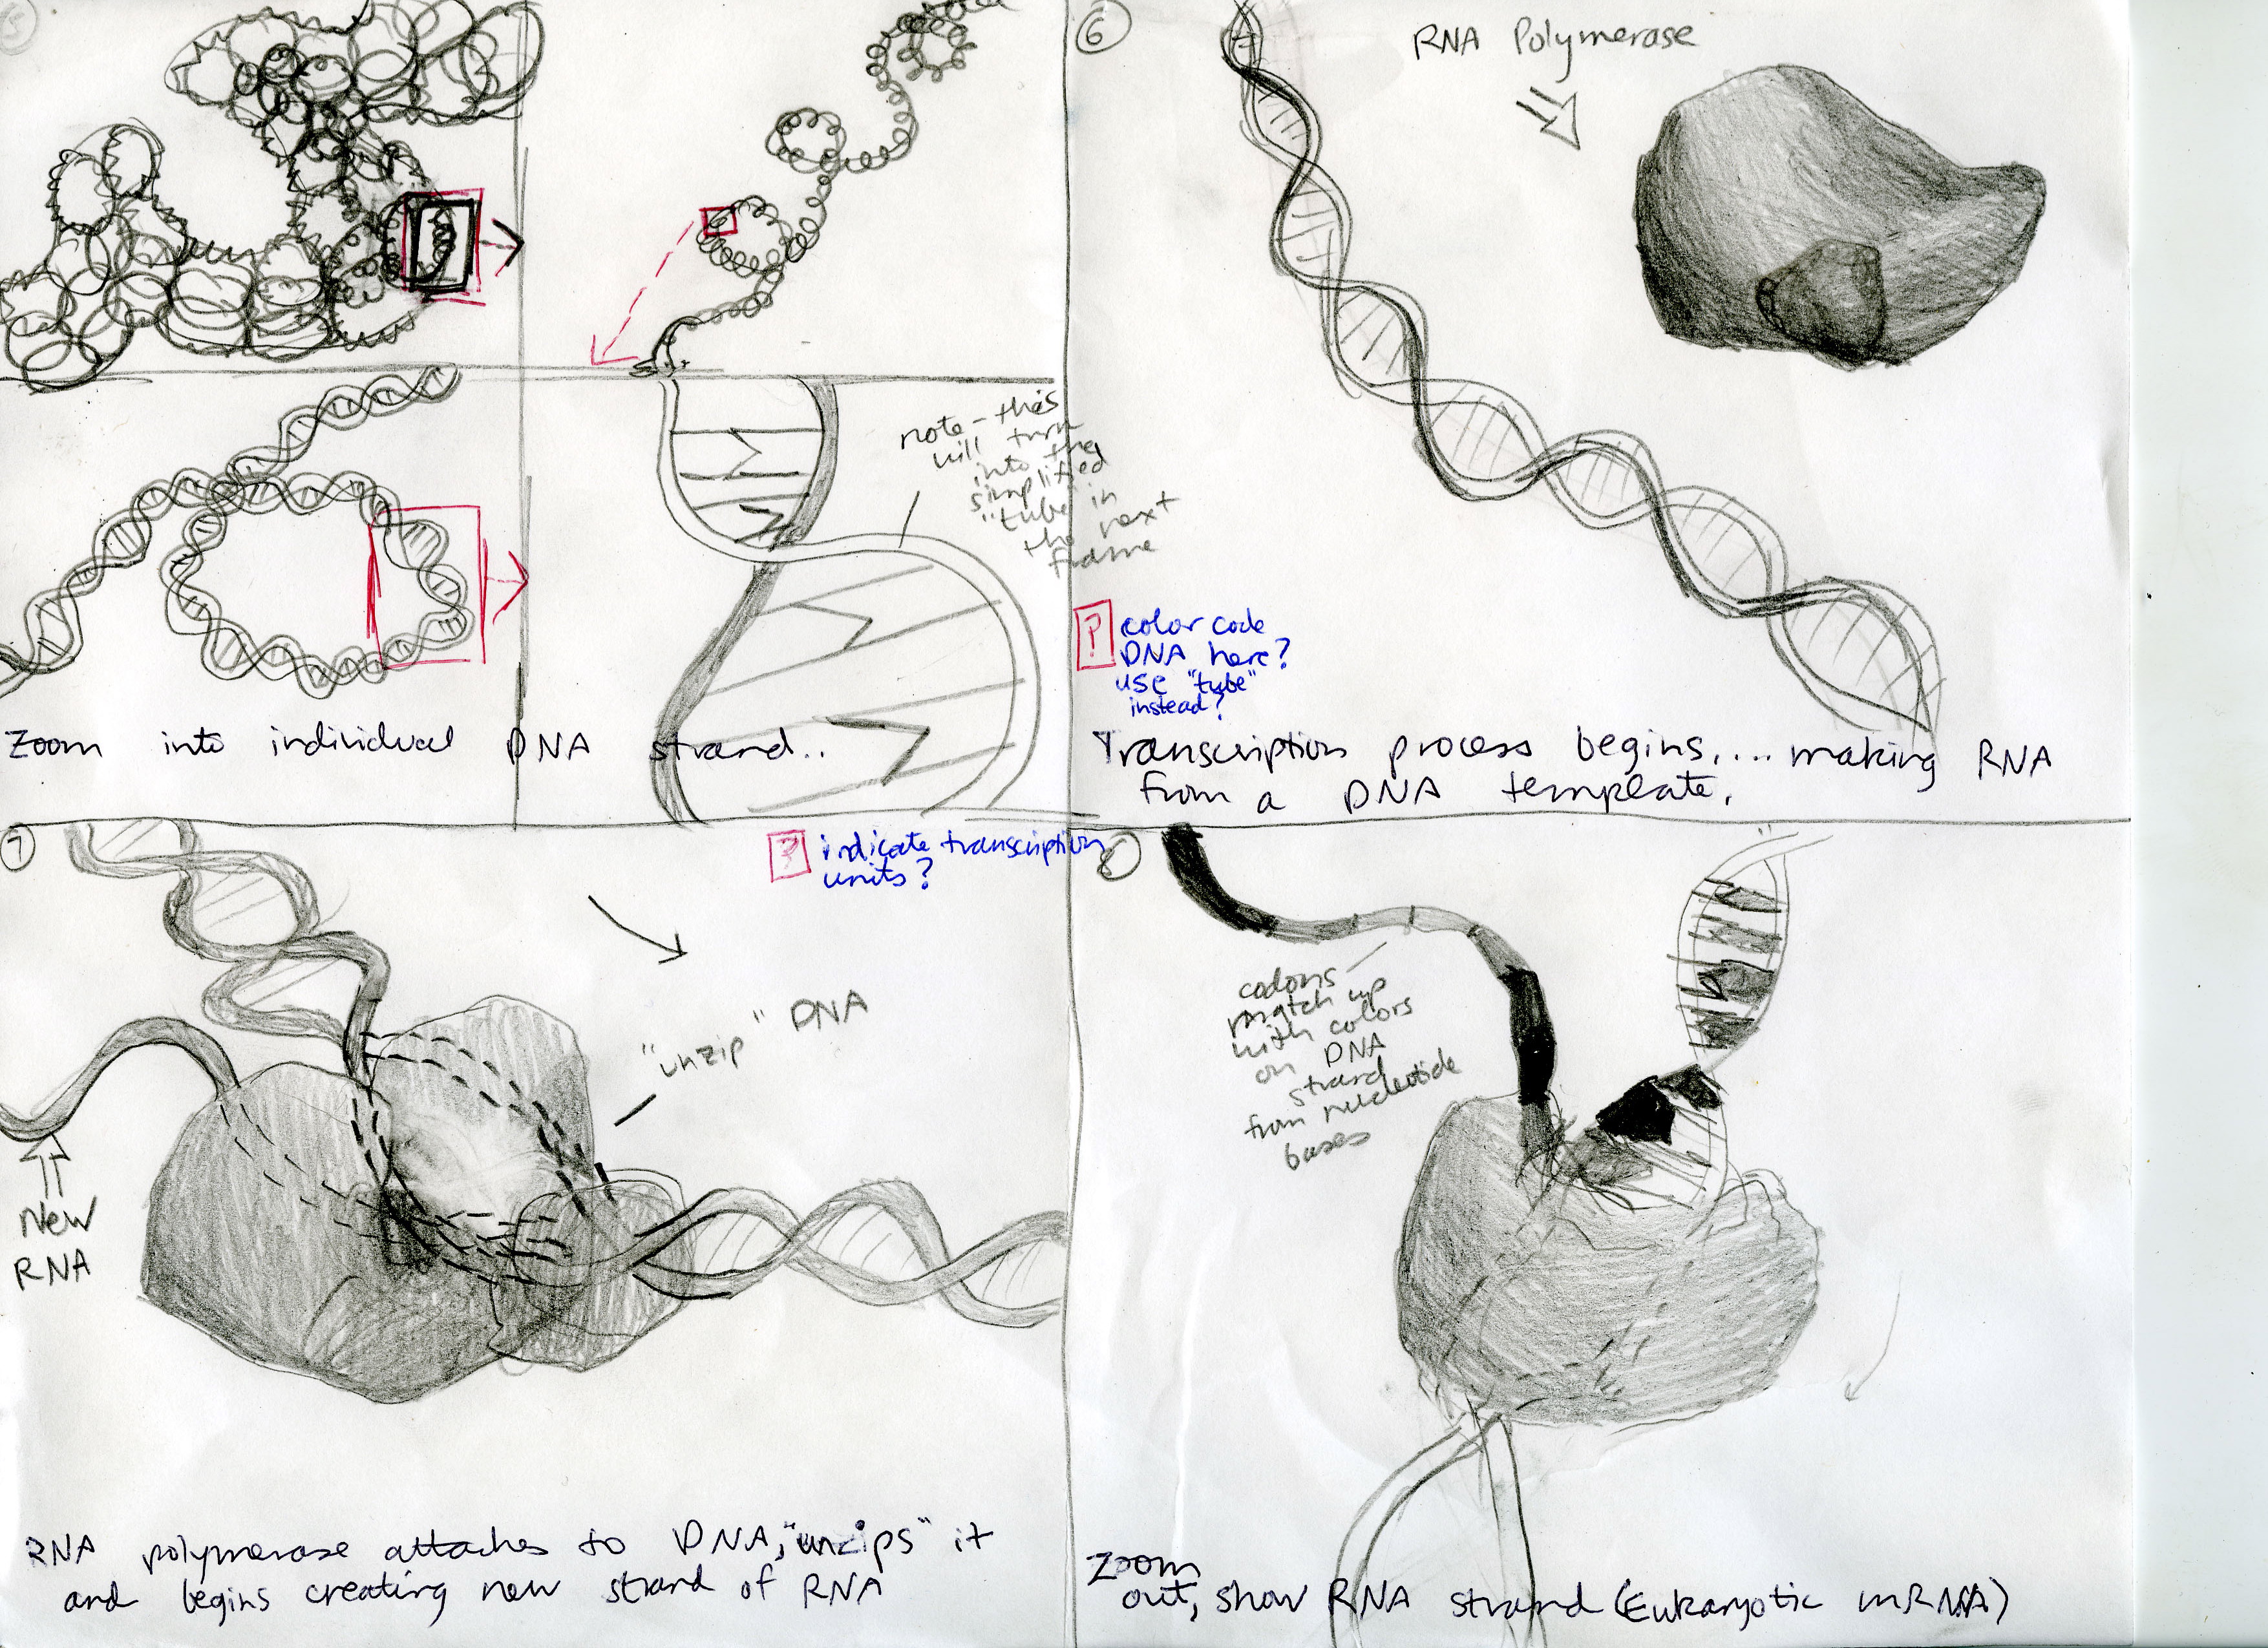 5
note - this
will turn
into the
simplified
"tube" in
the next
frame
Zoom into individual DNA strand..
6
RNA Polymerase
? color code
DNA here?
use "tube"
instead?
Transcription process begins.... making RNA
from a DNA template.
7
? indicate transcription
units?
"unzip" DNA
New
RNA
RNA polymerase attaches to DNA, "unzips" it
and begins creating new strand of RNA
codons
match up
with colors
on DNA
strand
from nucleotide
bases
Zoom
out, show RNA strand (Eukaryotic mRNA)